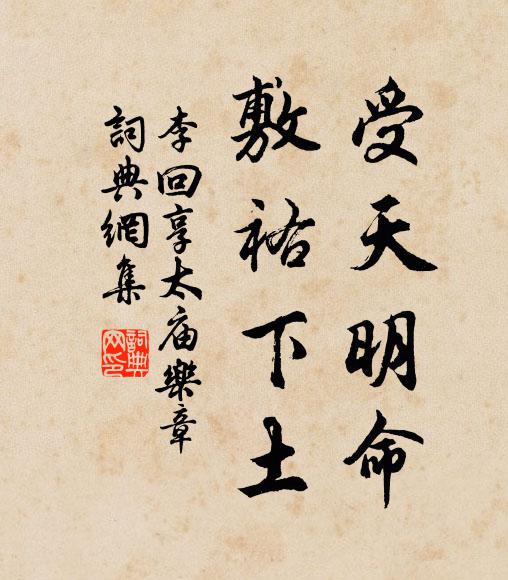 受天明命
敷祐下土
李回享太庙樂章
詞典網集
詞典網印